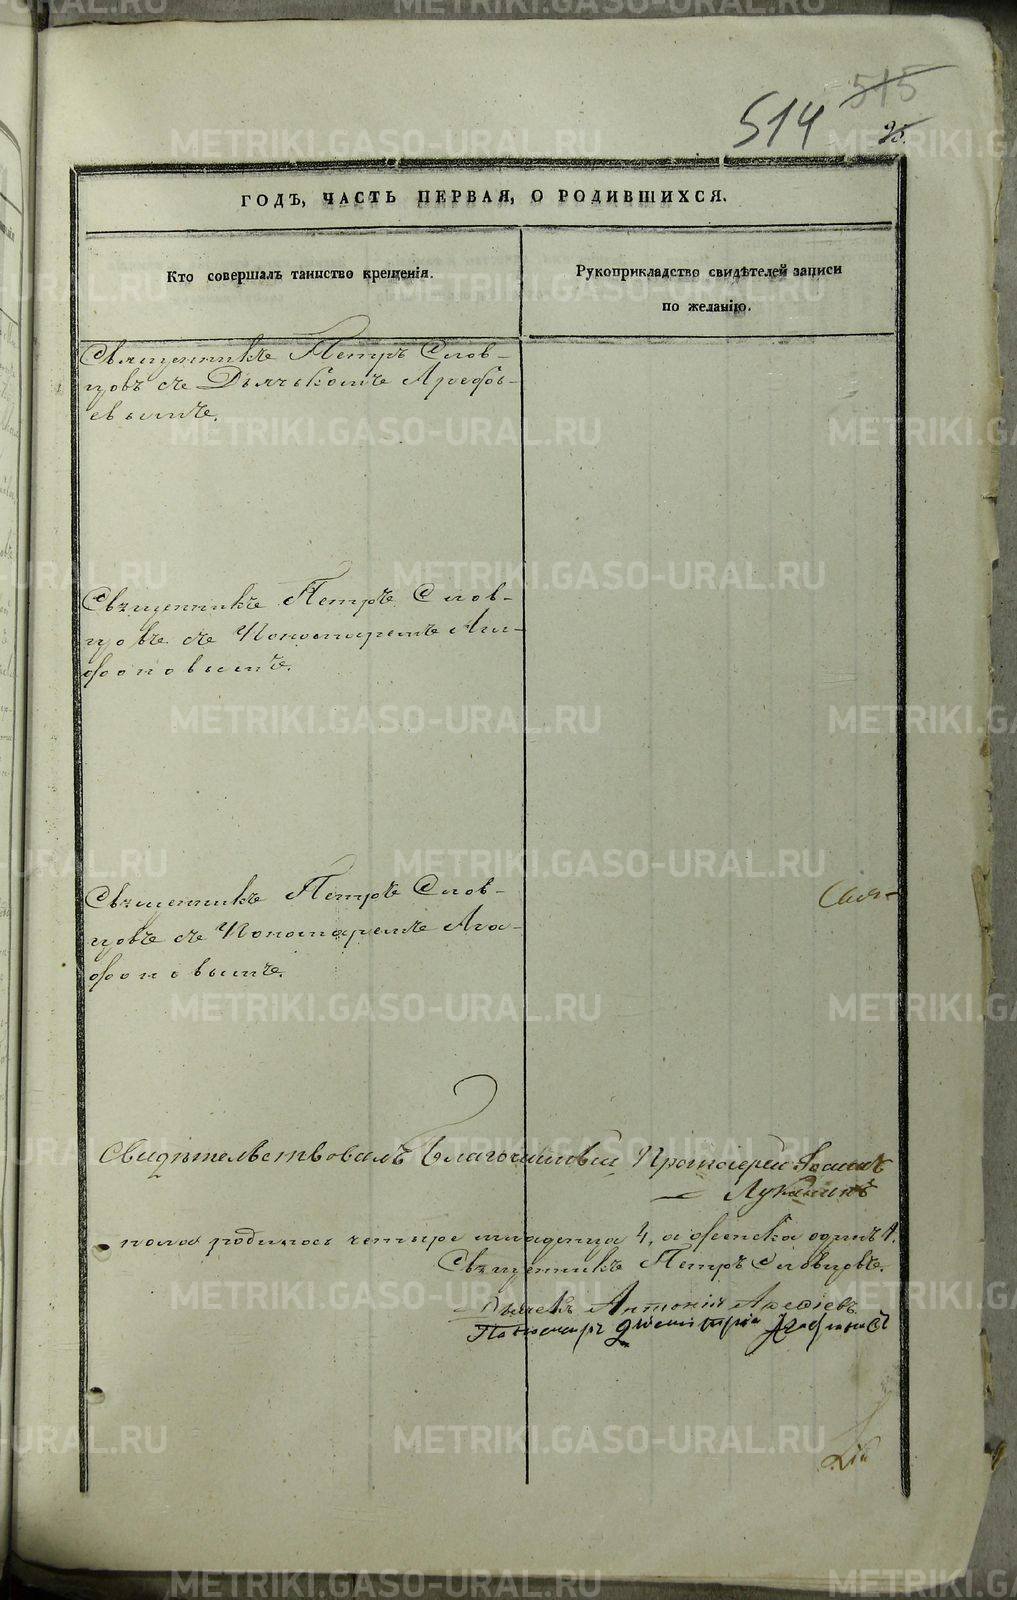 515
514
25.
ГОДЪ, ЧАСТЬ ПЕРВАЯ, О РОДИВШИХСЯ.
Кто совершалъ таинство крещенія.
Рукоприкладство свидѣтелей записи
по желанію.
Священникъ Петръ Слов-
цовъ съ Дьячькомъ Арефь-
евымъ.
Священникъ Петръ Слов-
цовъ съ Пономаремъ Ага-
фоновымъ.
Священникъ Петръ Слов-
цовъ съ Пономаремъ Ага-
фоновымъ.
Свидѣтельствовалъ Благочинный Протоіерей Іоаннъ
Луканинъ
пола родилось четыре младенца 4, а женска одинъ 1.
Священникъ Петръ Словцовъ.
Дьячекъ Антоній Арефьевъ
Пономарь Димитрій Агафоновъ
METRIKI.GASO-URAL.RU